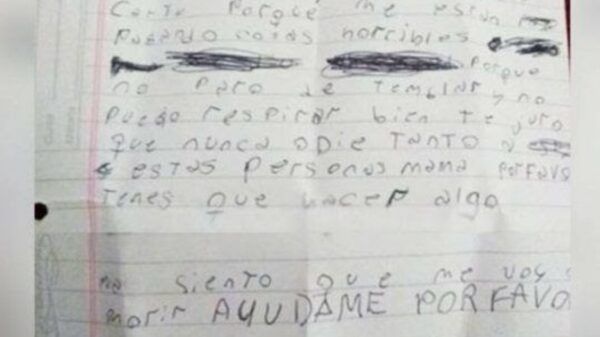 porque me estan
Pasando cosas horribles
Porque
no Paro de temblar y no
Puedo respirar bien te juro
que nunca odie TANTO a
estas Personas mama PorFavo
Tenes que hacer algo
siento que me voy a
morir AYUDAME PORFAVO